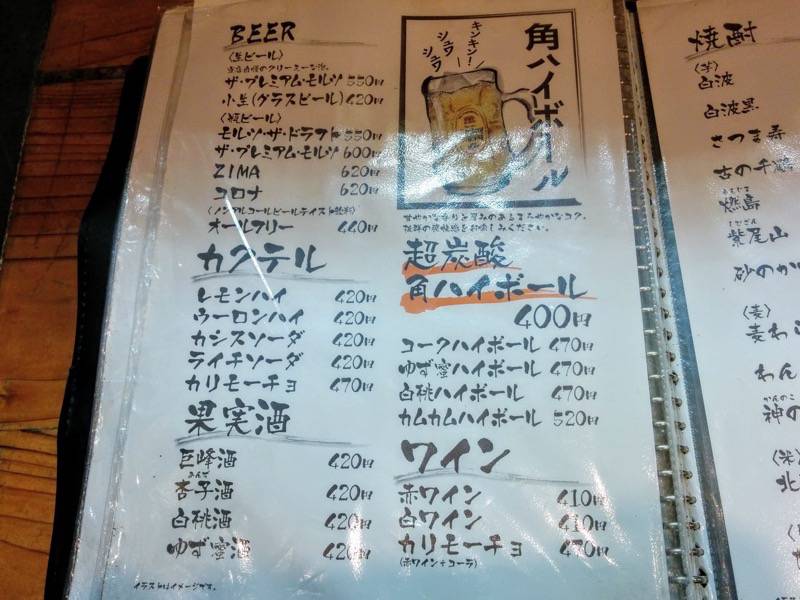 BEER
〈生ビール〉
当店自慢のクリーミーな泡。
ザ・プレミアム・モルツ 550円
小生(グラスビール) 420円
〈瓶ビール〉
モルツ・ザ・ドラフト 550円
ザ・プレミアム・モルツ 600円
ZIMA 620円
コロナ 620円
〈ノンアルコールビールテイスト飲料〉
オールフリー 440円
カクテル
レモンハイ 420円
ウーロンハイ 420円
カシスソーダ 420円
ライチソーダ 420円
カリモーチョ 470円
果実酒
巨峰酒 420円
あんず
杏子酒 420円
白桃酒 420円
ゆず蜜酒 420円
イラストはイメージです。
角ハイボール
キンキン!
シュワ
シュワ
甘やかな香りと厚みのあるまろやかなコク。
抜群の爽快感をお愉しみください。
超炭酸
角ハイボール
400円
コークハイボール 470円
ゆず蜜ハイボール 470円
白桃ハイボール 470円
カムカムハイボール 520円
ワイン
赤ワイン 410円
白ワイン 410円
カリモーチョ 470円
(赤ワイン+コーラ)
焼酎
〈芋〉
白波
白波黒
さつま寿
古の千鶴
燃島
紫尾山
砂のか
〈麦〉
麦わら
わん
かんのこ
神の
〈米〉
北